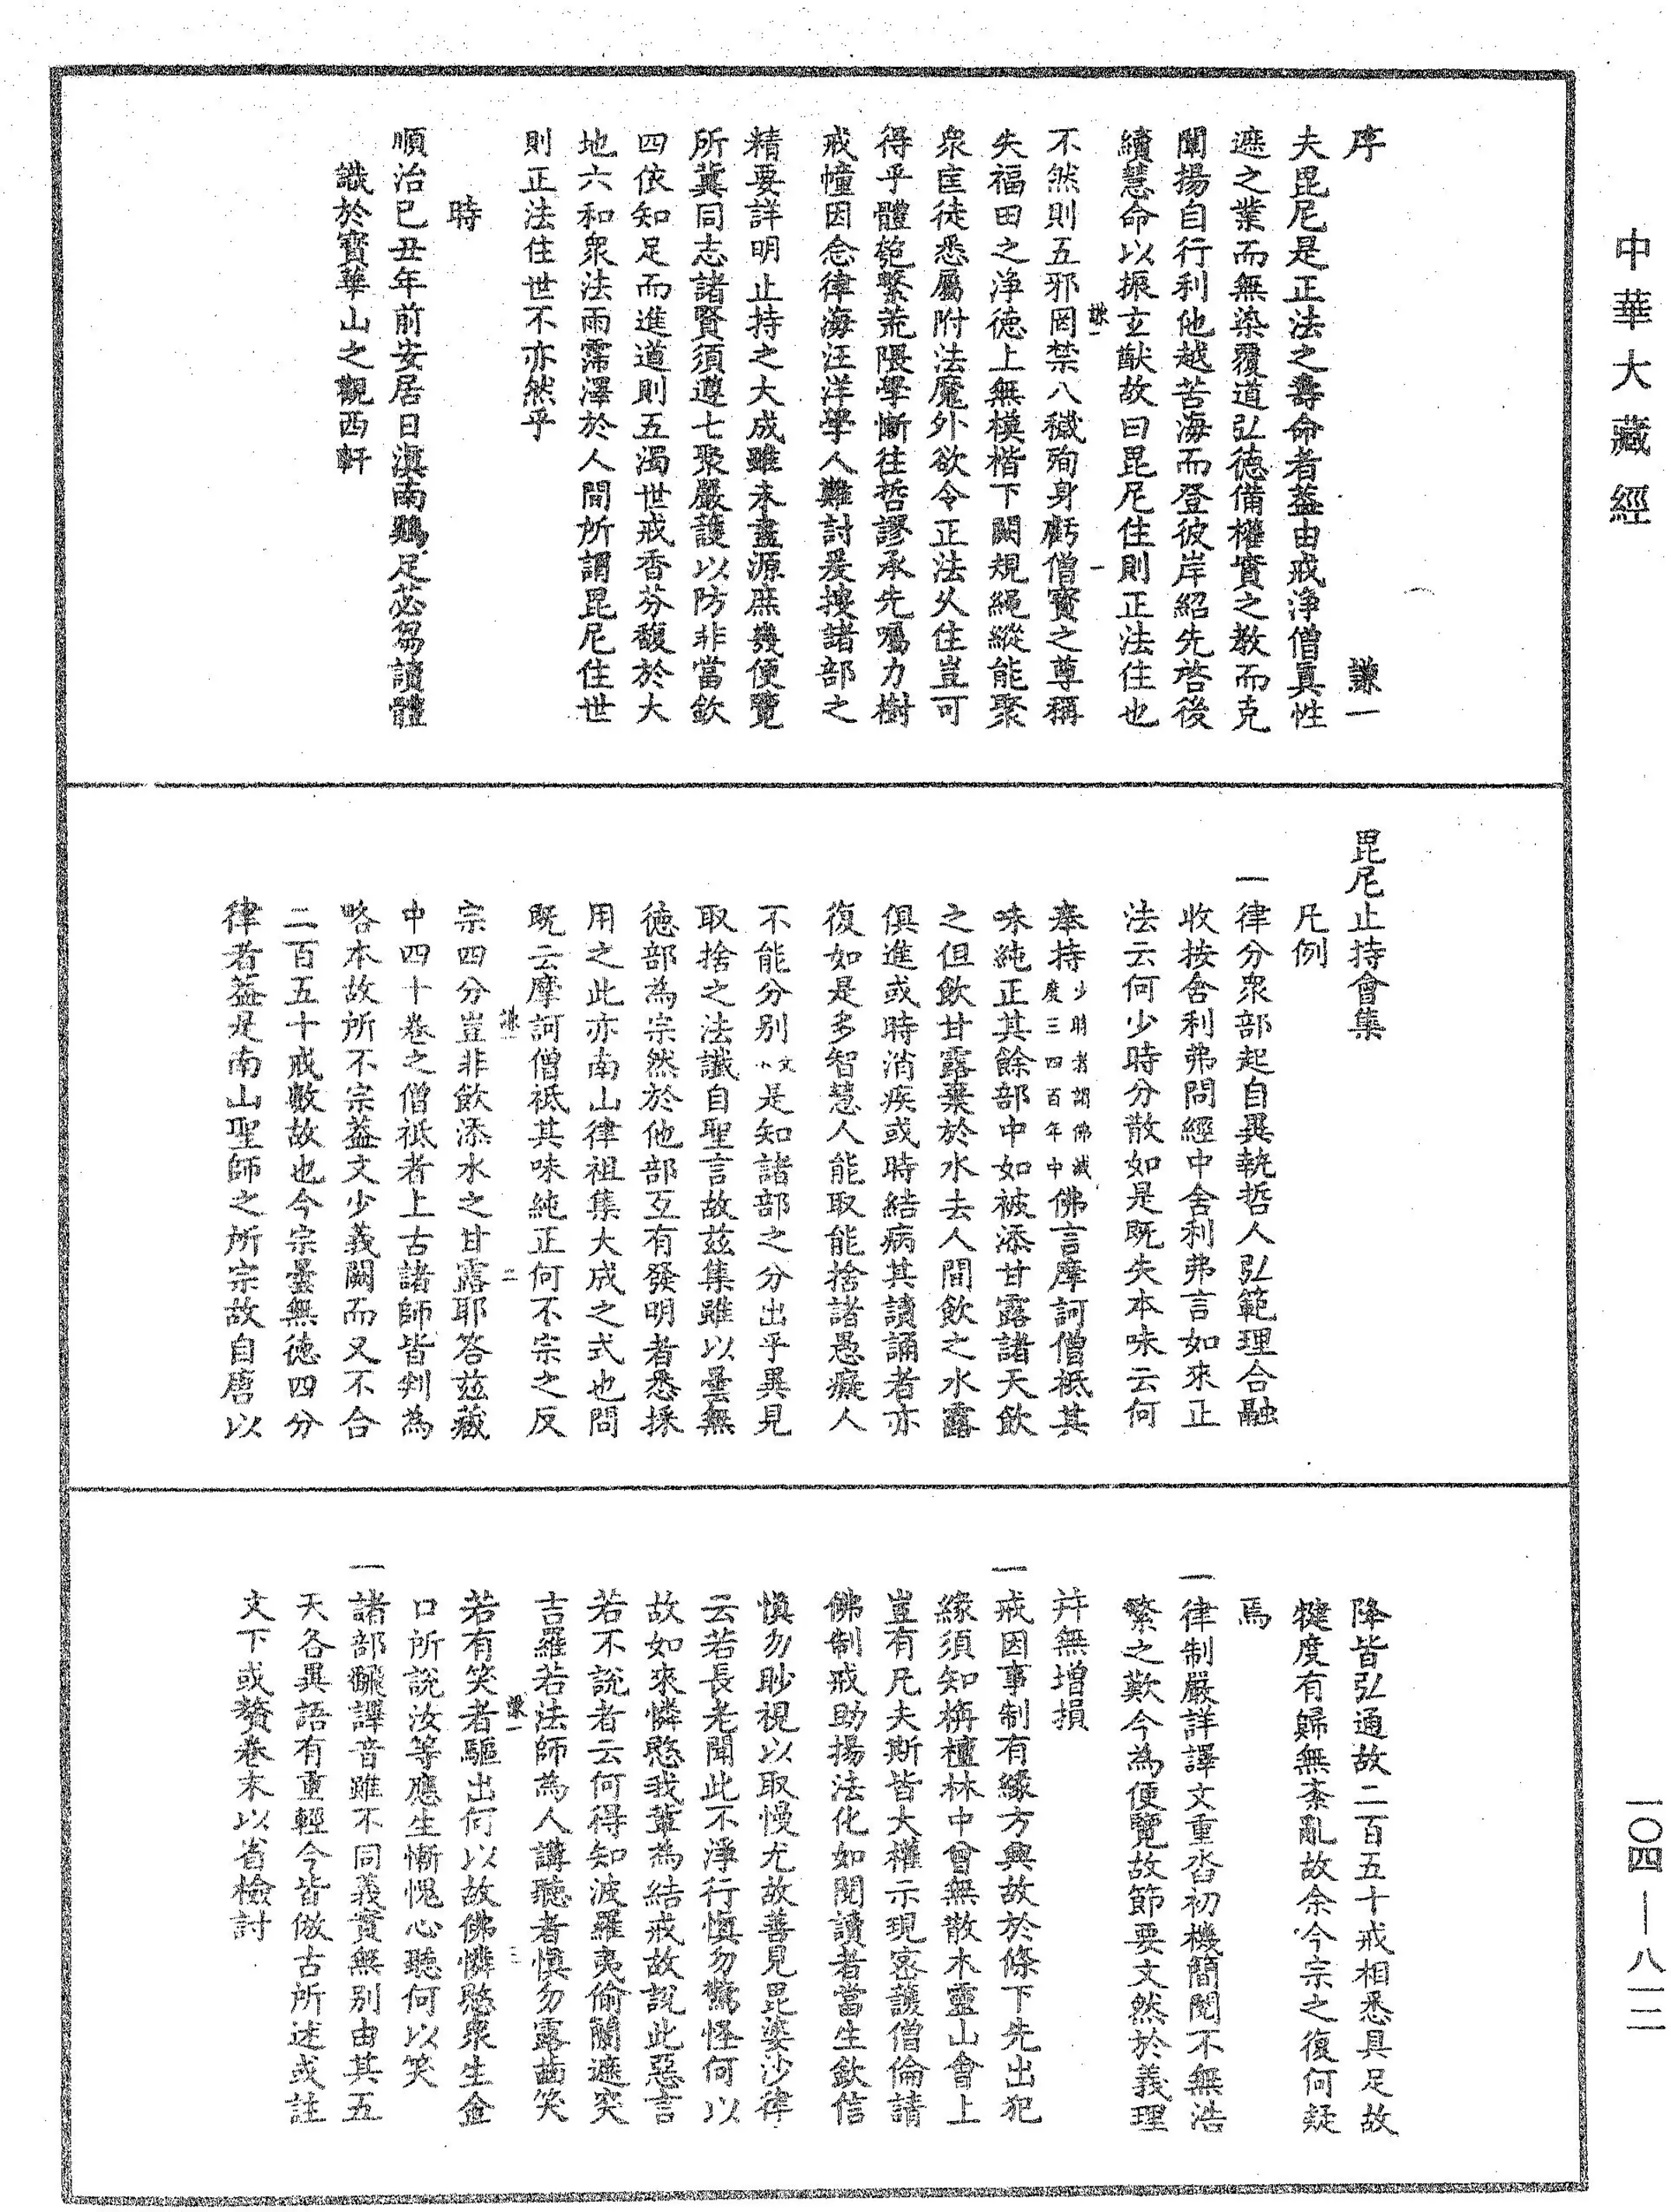 中華大藏經
一〇四—八一二
序 謙一
夫毘尼是正法之壽命者葢由戒淨僧真性
遮之業而無染覆道弘德備權實之教而克
闡揚自行利他越苦海而登彼岸紹先啓後
續慧命以振玄猷故曰毘尼住則正法住也
謙一 一
不然則五邪罔禁八穢殉身虧僧寳之尊稱
失福田之淨德上無模楷下闕規繩縱能聚
衆匡徒悉屬附法魔外欲令正法久住豈可
得乎體䏙繫荒隈學慚往哲謬承先囑力樹
戒幢因念律海汪洋學人難討爰摟諸部之
精要詳明止持之大成雖未盡源庶幾便覽
所冀同志諸賢須遵七聚嚴護以防非當欽
四依知足而進道則五濁世戒香芬馥於大
地六和衆法雨霈澤於人間所謂毘尼住世
則正法住世不亦然乎
時
順治己丑年前安居日滇南鷄足苾芻讀體
識於寳華山之觀西軒
毘尼止持會集
凡例
一律分衆部起自異執哲人弘範理合融
收按舍利弗問經中舍利弗言如來正
法云何少時分散如是既失本味云何
奉持少時者謂佛滅度三四百年中佛言摩訶僧祇其
味純正其餘部中如被添甘露諸天飲
之但飲甘露棄於水去人間飲之水露
俱進或時消疾或時結病其讀誦者亦
復如是多智慧人能取能捨諸愚癡人
不能分別文是知諸部之分出乎異見
取捨之法讖自聖言故茲集雖以曇無
德部為宗然於他部互有發明者悉採
用之此亦南山律祖集大成之式也問
既云摩訶僧祇其味純正何不宗之反
謙一 二
宗四分豈非飲添水之甘露耶答茲藏
中四十卷之僧祇者上古諸師皆判為
略本故所不宗葢文少義闕而又不合
二百五十戒數故也今宗曇無德四分
律者葢是南山聖師之所宗故自唐以
降皆弘通故二百五十戒相悉具足故
犍度有歸無紊亂故余今宗之復何疑
焉
一律制嚴詳譯文重沓初機簡閱不無浩
繁之歎今為便覽故節要文然於義理
并無增損
一戒因事制有緣方興故於條下先出犯
緣須知栴檀林中曾無散木靈山會上
豈有凡夫斯皆大權示現密護僧倫請
佛制戒助揚法化如聞讀者當生欽信
慎勿眇視以取慢尤故善見毘婆沙律
云若長老聞此不淨行慎勿驚怪何以
故如來憐愍我輩為結戒故說此惡言
若不說者云何得知波羅夷偷蘭遮突
吉羅若法師為人講聽者慎勿露齒笑
謙一 三
若有笑者驅出何以故佛憐愍衆生金
口所說汝等應生慚愧心聽何以笑
一諸部翻譯音雖不同義實無別由其五
天各異語有重輕今皆倣古所述或註
文下或贅卷末以省檢討